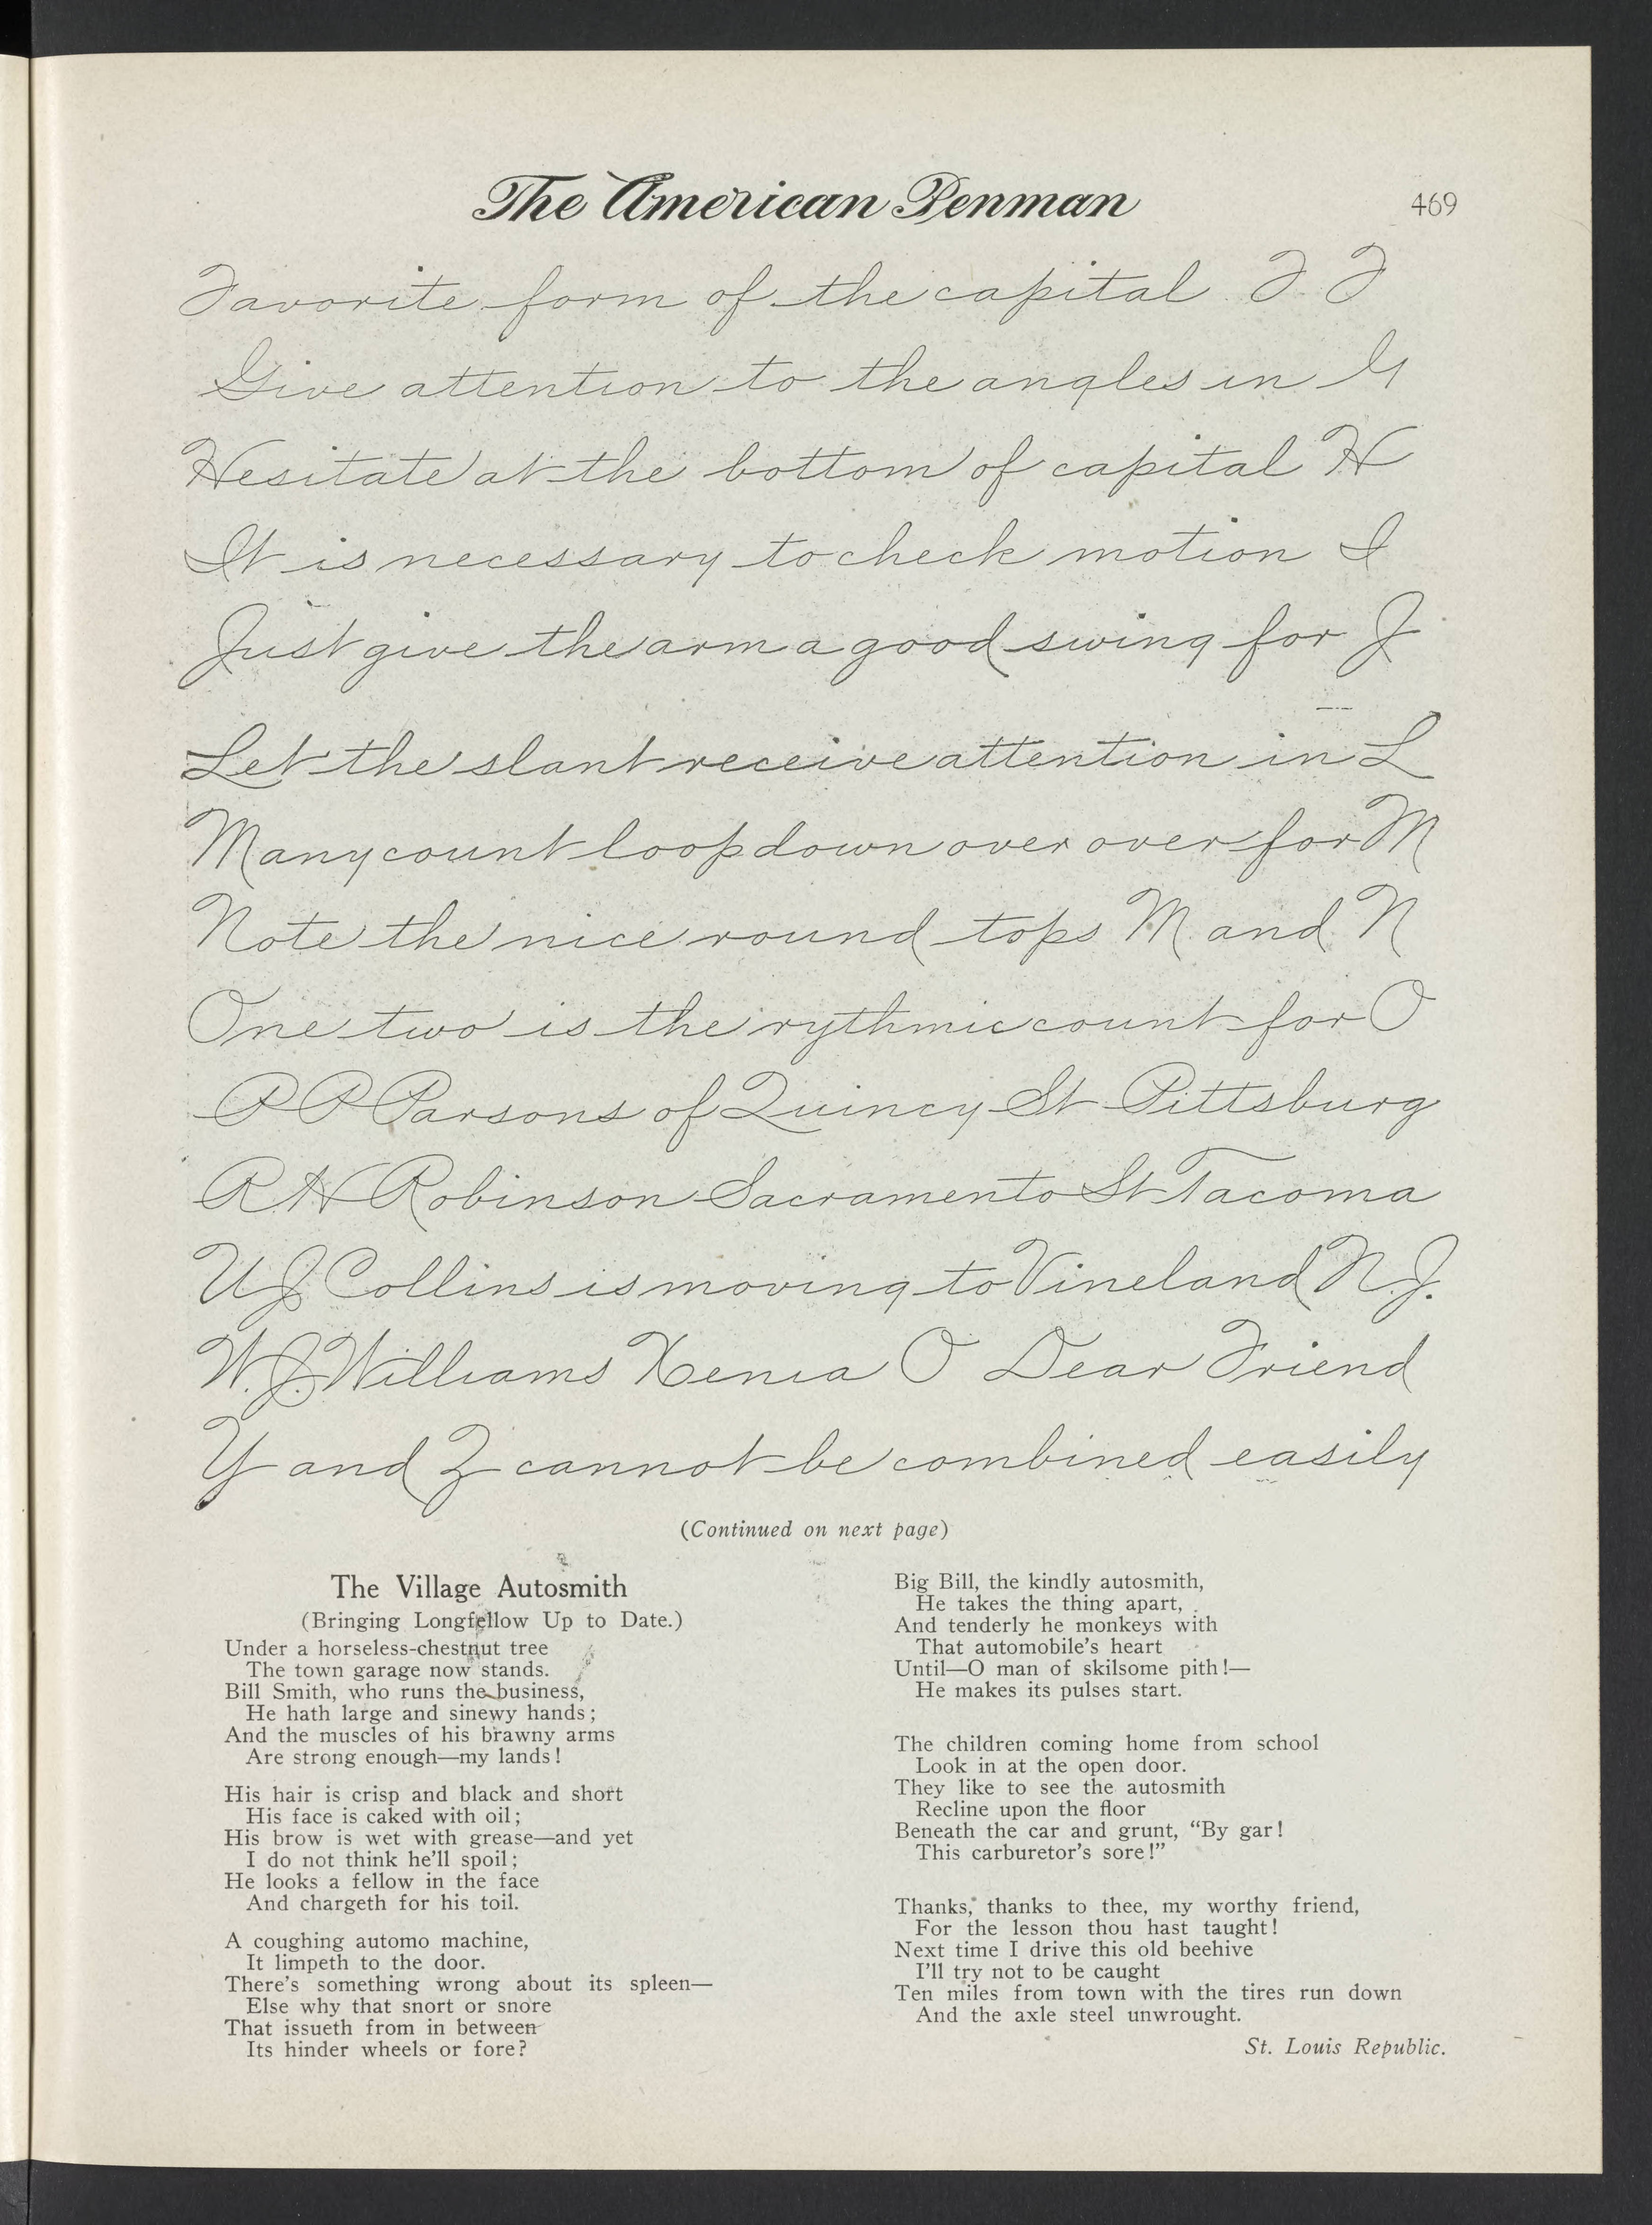 The American Penman
469
Favorite form of the capital F F
Give attention to the angles in G
Hesitate at the bottom of capital H
It is necessary to check motion I
Just give the arm a good swing for J
Let the slant receive attention in L
Many count loop down over over for M
Note the nice round tops M and N
One two is the rythmic count for O
P P Parsons of Quincy St Pittsburg
R H Robinson Sacramento St Tacoma
U J Collins is moving to Vineland N. J.
W. J. Williams Xenia O Dear Friend
Y and Z cannot be combined easily
(Continued on next page)
The Village Autosmith
(Bringing Longfellow Up to Date.)
Under a horseless-chestnut tree
The town garage now stands.
Bill Smith, who runs the business,
He hath large and sinewy hands;
And the muscles of his brawny arms
Are strong enough—my lands!
His hair is crisp and black and short
His face is caked with oil;
His brow is wet with grease—and yet
I do not think he'll spoil;
He looks a fellow in the face
And chargeth for his toil.
A coughing automo machine,
It limpeth to the door.
There's something wrong about its spleen—
Else why that snort or snore
That issueth from in between
Its hinder wheels or fore?
Big Bill, the kindly autosmith,
He takes the thing apart,
And tenderly he monkeys with
That automobile's heart
Until—O man of skilsome pith!—
He makes its pulses start.
The children coming home from school
Look in at the open door.
They like to see the autosmith
Recline upon the floor
Beneath the car and grunt, "By gar!
This carburetor's sore!"
Thanks, thanks to thee, my worthy friend,
For the lesson thou hast taught!
Next time I drive this old beehive
I'll try not to be caught
Ten miles from town with the tires run down
And the axle steel unwrought.
St. Louis Republic.